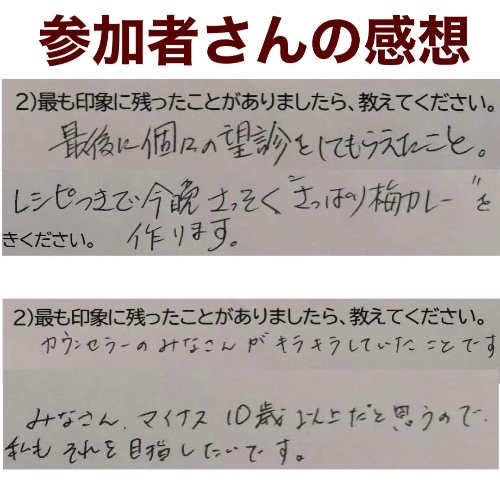 参加者さんの感想
2)最も印象に残ったことがありましたら、教えてください。
最後に個々の望診をしてもらえたこと。
レシピつきで今晩さっそく“さっぱり梅カレー”を
きください。 作ります。
2)最も印象に残ったことがありましたら、教えてください。
カウンセラーのみなさんがキラキラしていたことです
みなさん、マイナス10歳以上だと思うので、
私もそれを目指したいです。